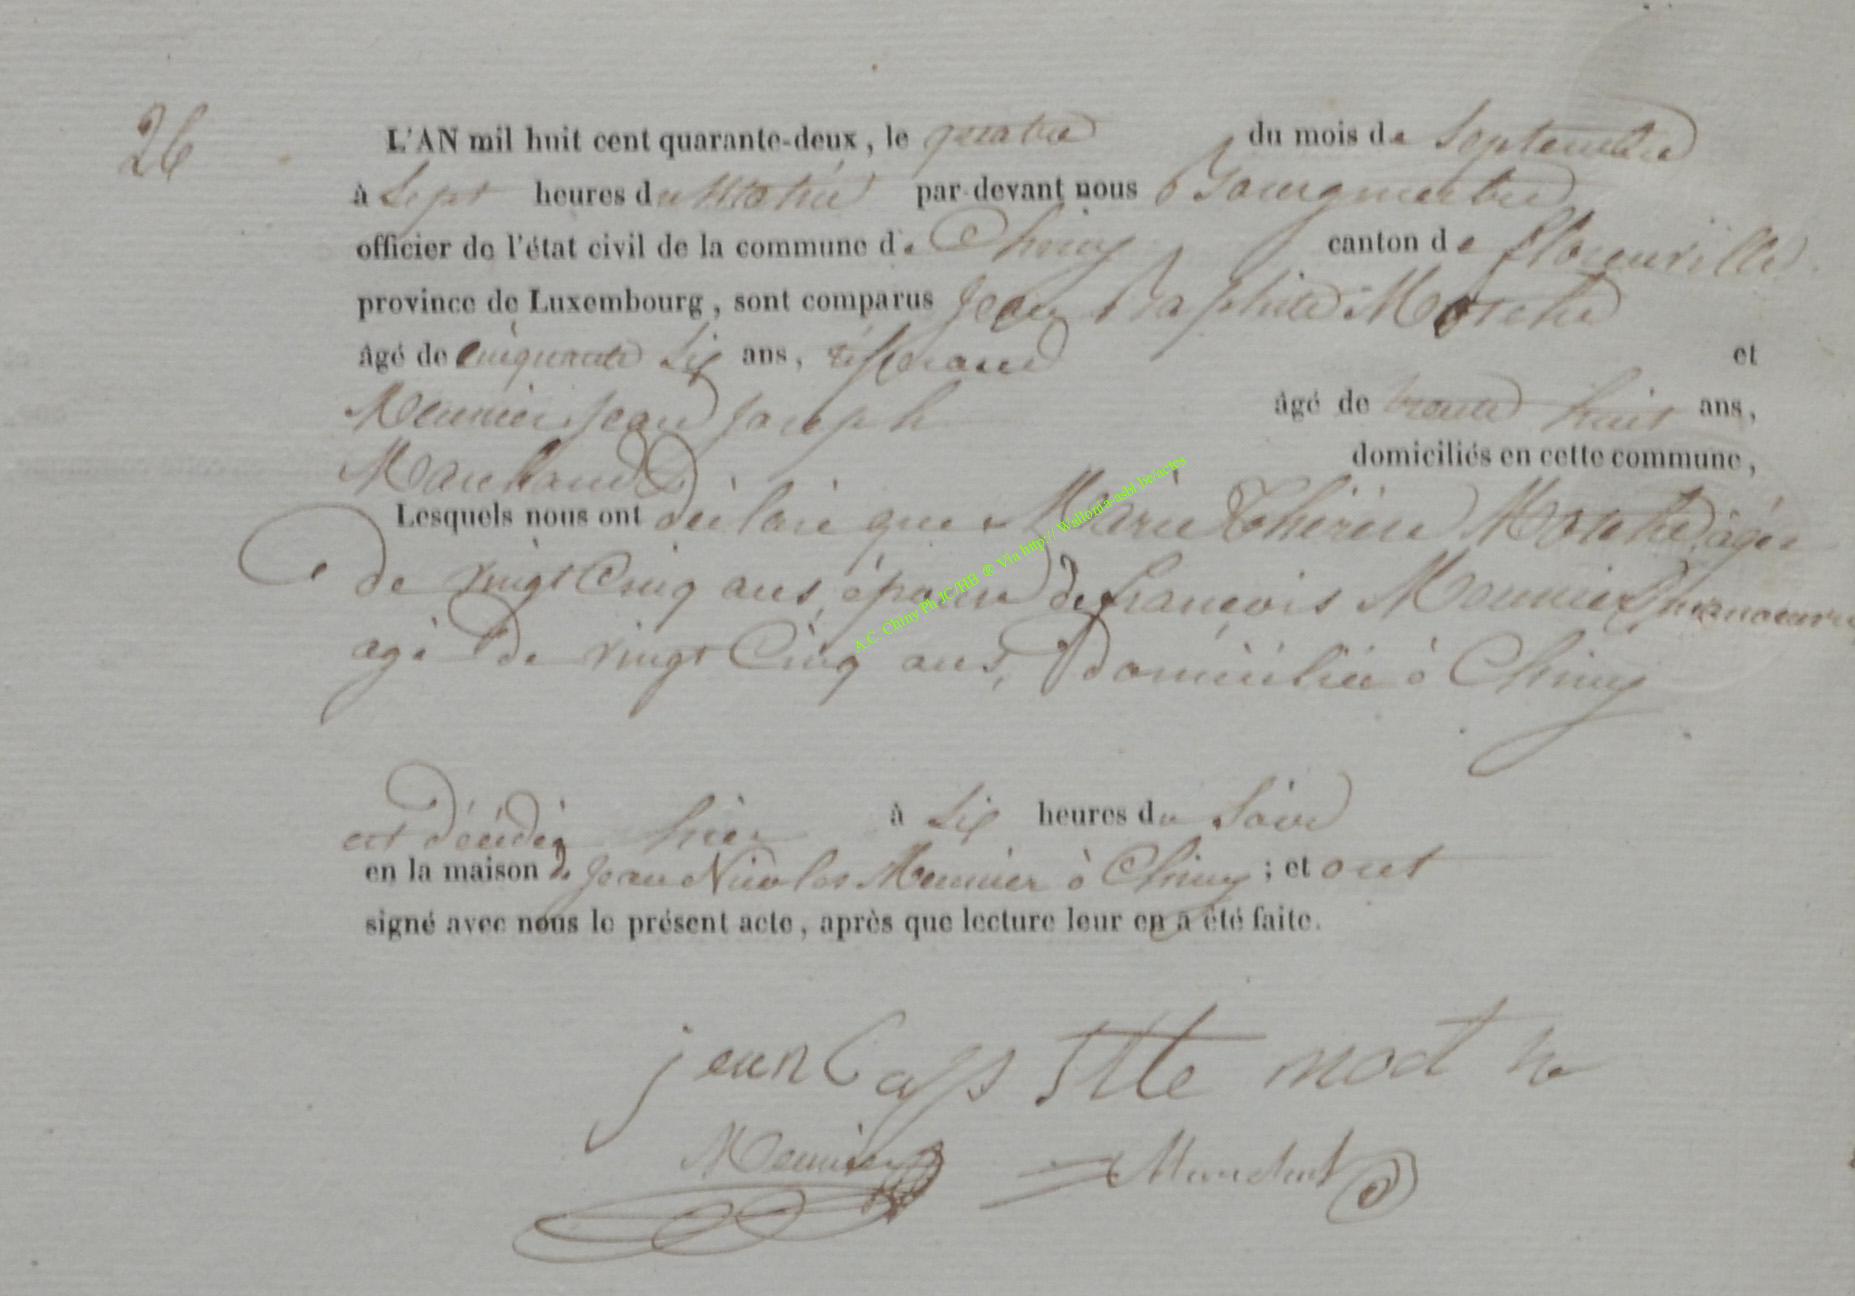 26
L'AN mil huit cent quarante-deux, le quatre du mois de Septembre
à Sept heures du Matin par-devant nous Bourgmestre
officier de l'état civil de la commune de Chiny canton de florenville
province de Luxembourg, sont comparus Jean Baptiste Mothe
âgé de cinquante six ans, et
Meunier Jean Joseph âgé de trente huit ans,
Marchand domiciliés en cette commune,
Lesquels nous ont déclaré que Marie Thérèse Mothe âgée
de vingt Cinq ans, épouse de françois Meunier manoeuvre
agé de vingt Cinq ans, domiciliée à Chiny
est décédée hier à Six heures du Soir
en la maison de Jean Nicolas Meunier à Chiny ; et ont
signé avec nous le présent acte, après que lecture leur en a été faite.
A.C. Chiny Ph JC/HB ® Via http:// Wallonia-asbl.be/actes
jean bapstte mothe
Meunier